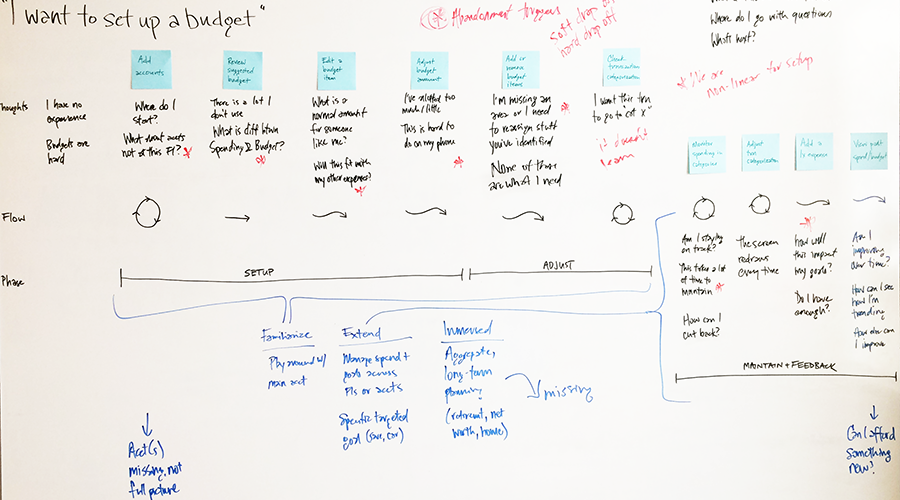 "I want to set up a budget"
Abandonment triggers
soft drop off
hard drop off
Where do I go with questions
What's next?
* We are
non-linear for setup
Add
accounts
Review
suggested
budget
Edit a
budget
item
Adjust
budget
amount
Add or
remove
budget
items
Check
transaction
categorization
houghts
I have no
experience
Budgets are
hard
Where do I
start?
What about accts
not at this FI? *
There is a lot I
don't use
What is diff btwn
Spending & Budget?
*
What is a
normal amount
for someone
like me?
Will this fit with
my other expenses?
*
I've allotted too
much/little
This is hard to
do on my phone
*
I'm missing an
area or I need
to reassign stuff
you've identified
*
None of these
are what I need
I want this txn
to go to "cat x"
it doesn't
learn
Monitor
spending in
categories
Adjust
txn
categorization
Add a
to expense
View past
spend/budget
Flow
Am I staying
on track?
This takes a lot
of time to
maintain *
How can I
cut back?
the screen
redraws
every time
*
how will
this impact
my goals?
Do I have
enough?
Am I
improving
over time?
How can I see
how I'm
trending
How else can
I improve
Phase
SETUP
ADJUST
MAINTAIN + FEEDBACK
Familiarize
Play around w/
main acct
Extend
Manage spend +
goals across
FIs or accts
Specific targeted
goal (save, car)
Immersed
Aggregate,
long-term
planning
(retirement, net
worth, home)
missing
Acct(s)
missing, not
full picture
Can I afford
something
new?